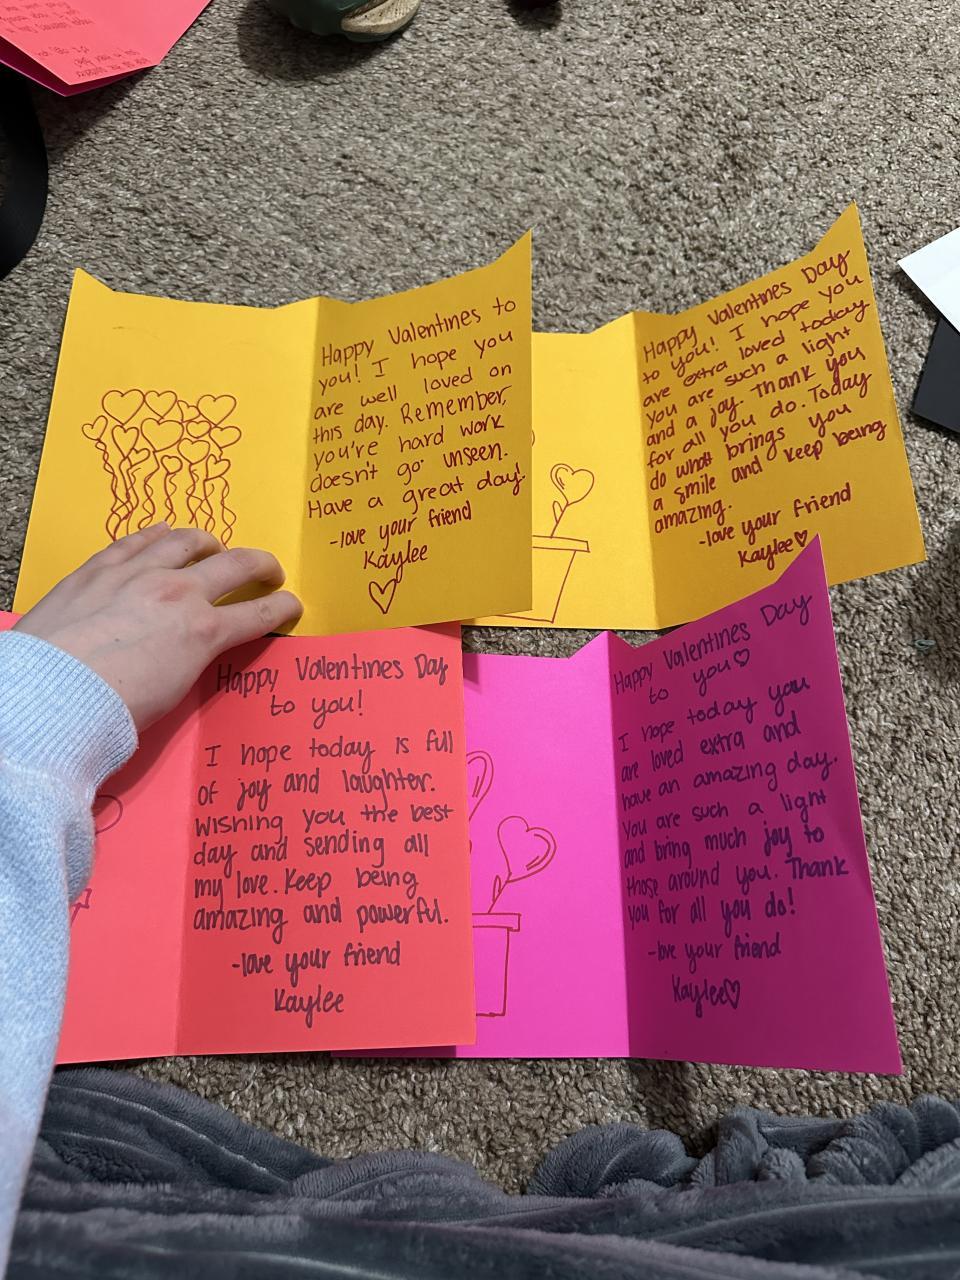 Happy Valentines to
you! I hope you
are well loved on
this day. Remember,
you're hard work
doesn't go unseen.
Have a great day!
-love your friend
Kaylee
Happy Valentines Day
to you! I hope you
are extra loved today
you are such a light
and a joy. Thank you
for all you do. Today
do what brings you
a smile and keep being
amazing.
-love your friend
Kaylee
Happy Valentines Day
to you!
I hope today is full
of joy and laughter.
Wishing you the best
day and sending all
my love. Keep being
amazing and powerful.
-love your friend
Kaylee
Happy Valentines Day
to you
I hope today you
are loved extra and
have an amazing day.
You are such a light
and bring much joy to
those around you. Thank
you for all you do!
-love your friend
Kaylee